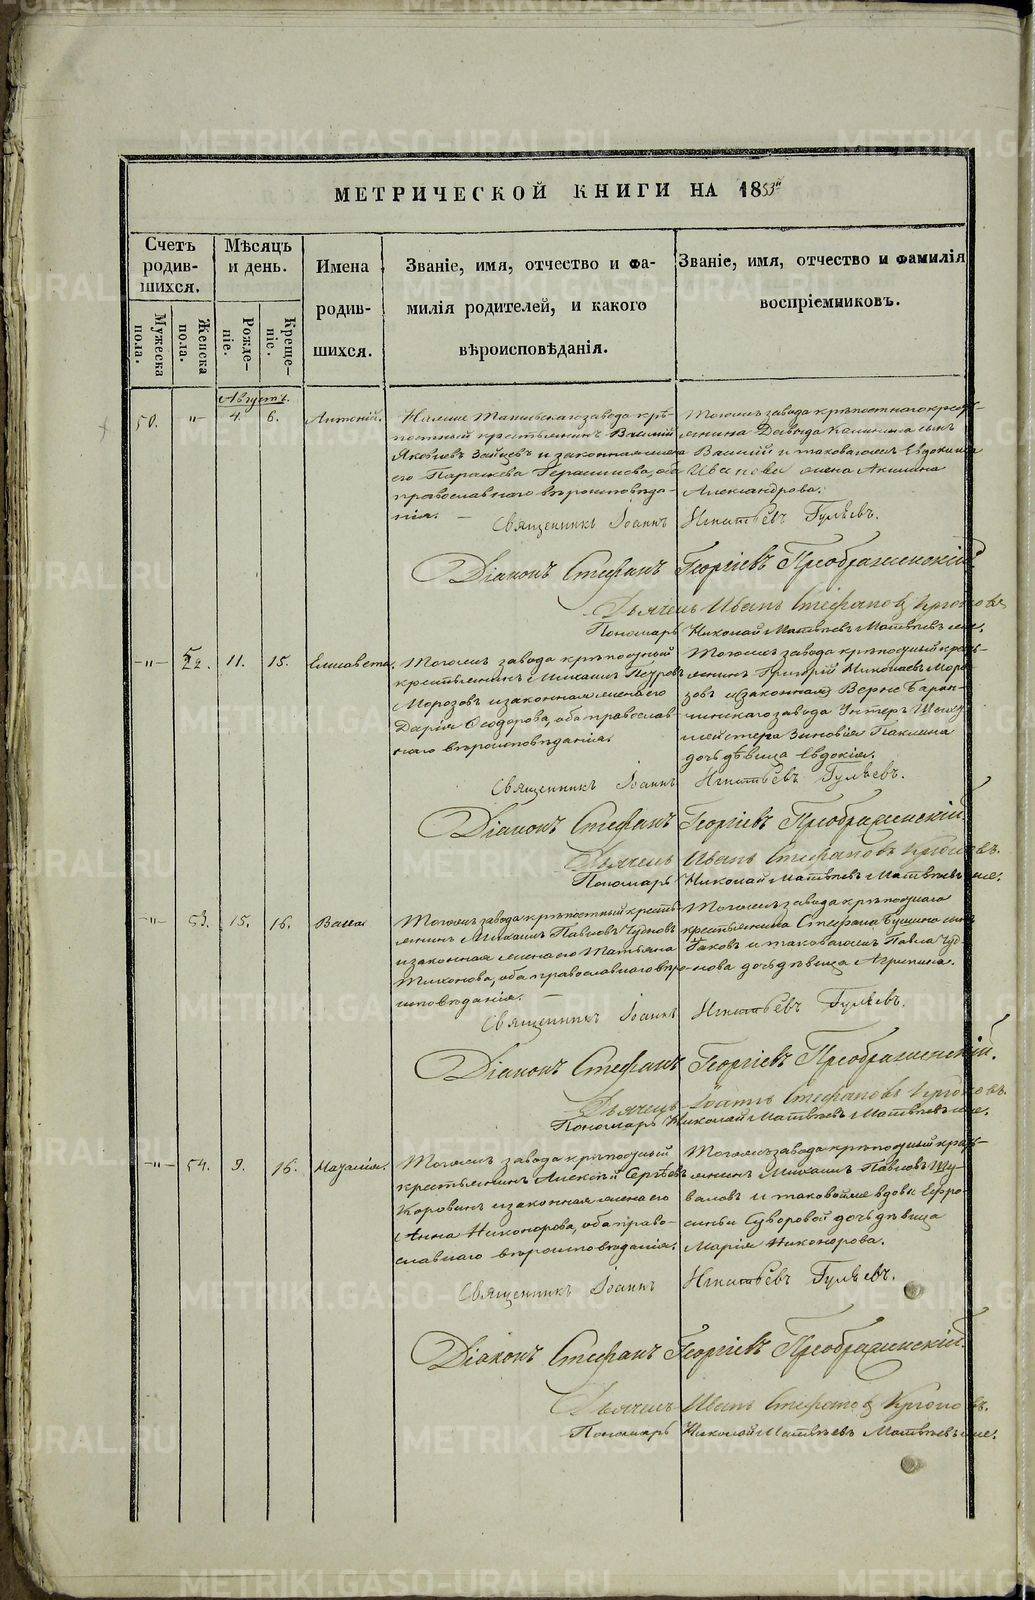 МЕТРИЧЕСКОЙ КНИГИ НА 1853й
Счетъ родив-шихся.
Мужеска пола.
Женска пола.
Мѣсяцъ и день.
Рожде-ніе.
Креще-ніе.
Имена
родив-
шихся.
Званіе, имя, отчество и фа-
милія родителей, и какого
вѣроисповѣданія.
Званіе, имя, отчество и фамилія
воспріемниковъ.
Августъ.
50. -"- 4. 6. Антоній.
завода крѣ-
постный крестьянинъ Василій
Яковлевъ Зайцевъ и законная жена
его Параскева Герасимова, оба
православнаго вѣроисповѣда-
нія.
Тогоже завода крѣпостнаго кресть-
янина Давида Калинина сынъ
Василій и таковагоже Евдокима
Иванова жена Акилина
Александрова.
Священникъ Іоаннъ Игнатьевъ Гуляевъ.
Діаконъ Стефанъ Георгіевъ Преображенскій
Дьячекъ Иванъ Стефановъ
Пономарь Николай Матвѣевъ
-"- 52. 11. 15. Елисавета.
Тогоже завода крѣпостный
крестьянинъ Михаилъ Петровъ
Морозовъ и законная жена его
Дарія Ѳеодорова, оба православ-
наго вѣроисповѣданія.
Тогоже завода крѣпостный кресть-
янинъ Григорій Николаевъ Моро-
зовъ и (законная) Верхне Баран-
чинскаго завода Унтеръ Шихт-
мейстера Зиновія Паклина
дочь дѣвица Евдокія.
Священникъ Іоаннъ Игнатьевъ Гуляевъ.
Діаконъ Стефанъ Георгіевъ Преображенскій
Дьячекъ Иванъ Стефановъ
Пономарь Николай Матвѣевъ
-"- 53. 15. 16. Васса
Тогоже завода крѣпостный кресть-
янинъ Михаилъ Павловъ Чудновъ
и законная жена его Татьяна
Тихонова, оба православнаго вѣро-
исповѣданія.
Тогоже завода крѣпостнаго
крестьянина Стефана сынъ
Іаковъ и таковагоже Павла Чуд-
нова дочь дѣвица Агрипина.
Священникъ Іоаннъ Игнатьевъ Гуляевъ.
Діаконъ Стефанъ Георгіевъ Преображенскій.
Дьячекъ Іоаннъ Стефановъ
Пономарь Николай Матвѣевъ
-"- 54. 9. 16. Наталія.
Тогоже завода крѣпостный
крестьянинъ Алексій Сергѣевъ
Коровинъ и законная жена его
Анна Никонорова, оба право-
славнаго вѣроисповѣданія.
Тогоже завода крѣпостный кресть-
янинъ Михаилъ Павловъ Шу-
валовъ и таковойже вдовы Ефро-
синьи Суворовой дочь дѣвица
Марія Никонорова.
Священникъ Іоаннъ Игнатьевъ Гуляевъ.
Діаконъ Стефанъ Георгіевъ Преображенскій
Дьячекъ Иванъ Стефановъ
Пономарь Николай Матвѣевъ
METRIKI.GASO-URAL.RU